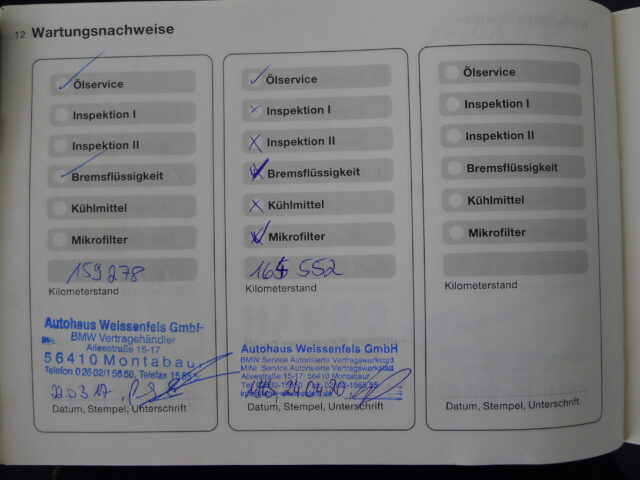 12 Wartungsnachweise
Ölservice
Inspektion I
Inspektion II
Bremsflüssigkeit
Kühlmittel
Mikrofilter
159278
Kilometerstand
Autohaus Weissenfels GmbH
BMW Vertragshändler
Alleestraße 15-17
56410 Montabaur
Telefon 02602/15650, Telefax
20.3.17
Datum, Stempel, Unterschrift
Ölservice
Inspektion I
Inspektion II
Bremsflüssigkeit
Kühlmittel
Mikrofilter
164 552
Kilometerstand
Autohaus Weissenfels GmbH
BMW Service Autorisierte Vertragswerkstatt
MINI Service Autorisierte Vertragswerkstatt
Alleestraße 15-17 · 56410 Montabaur
24.04.20
Datum, Stempel, Unterschrift
Ölservice
Inspektion I
Inspektion II
Bremsflüssigkeit
Kühlmittel
Mikrofilter
Kilometerstand
Datum, Stempel, Unterschrift